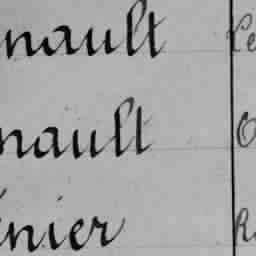 nault Le
nault
énier R